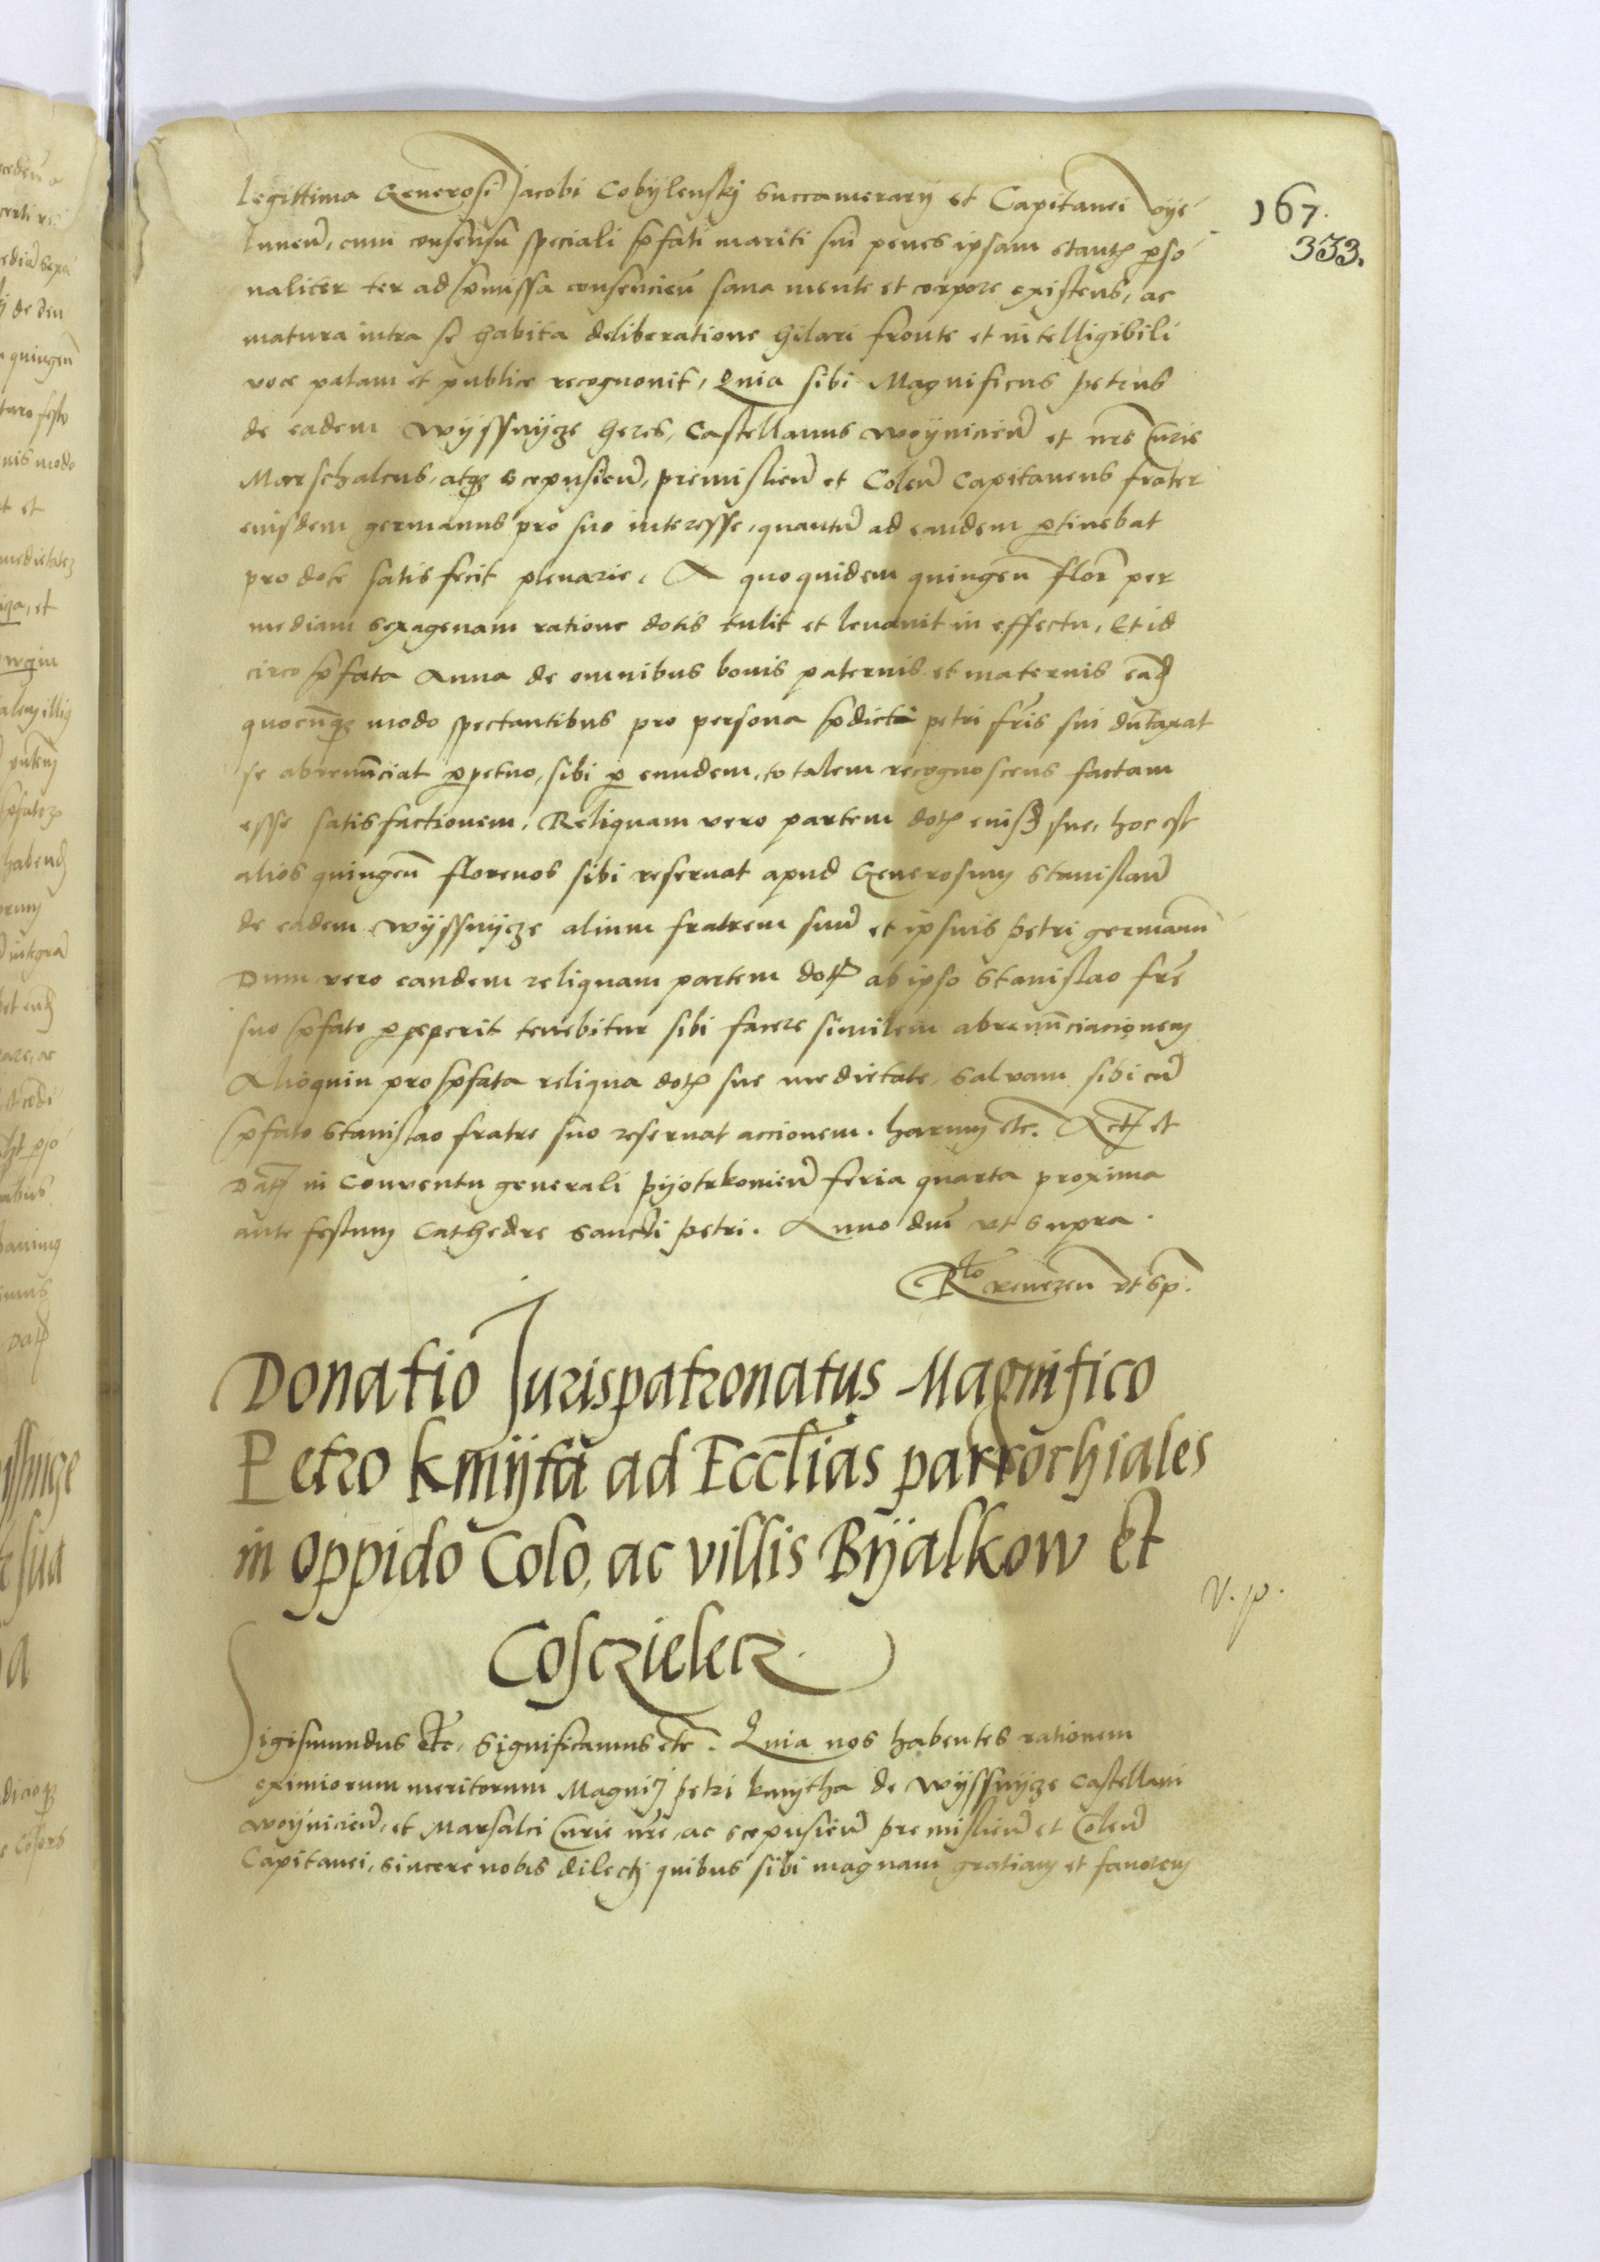 167.
333.
legittima Generosi Jacobi Cobijlenskj Succamerarij et Capitanei vije
luneñ, cum consensu speciali p̄fati mariti sui penes ipsam stantis perso
naliter ter ad p̄missa consencieñ sana mente et corpore existens, ac
matura intra se habita deliberatione hilari fronte et intelligibili
voce palam et publice recognouit, Quia sibi Magnificus Petrus
de eadem Wijssnijcze heres, Castellanus Woijnicieñ et nr̄e Curie
Marschalcus, atqꝫ Scepusieñ, Premislieñ et Coleñ Capitaneus frater
eiusdem germanus pro suo interesse, quantū ad eandem ꝑtinebat
pro dote satisfecit plenarie, A quo quidem quingeñ flor̄ per
mediam sexagenam ratione dotis tulit et leuauit in effectu, Et id
circo p̄fata Anna de omnibus bonis paternis et maternis ead
quocūqꝫ modo spectantibus pro persona p̄dicti petri fr̄is sui dūtaxat
se abrenūnciat ꝑpetuo, sibi ꝑ eundem, totalem recognoscens factam
esse satisfactionem, Reliquam vero partem dotis eiusd sue, hoc est
alios quingeñ florenos sibi reseruat apud Generosum Stanislaū
de eadem Wijssnijcze alium fratrem suū et ipsius Petri germanū
Dum vero eandem reliquam partem dotis ab ipso Stanislao fr̄e
suo p̄fato ꝑceperit tenebitur sibi facere similem abrenūnciacionem
Alioquin pro p̄fata reliqua dotis sue medietate, saluam sibi cū
p̄fato Stanislao fratre suo reseruat accionem. harum etc. Act et
Dat in Conuentu generali Pijotrkouieñ feria quarta proxima
ante festum Cathedre sancti Petri. Anno dni vt supra.
Rto reuereñ vt sp.
Donatio Jurispatronatus Magnifico
Petro Kmijta ad Ecclīas parrochiales
in oppido Colo, ac villis Bijalkow et
Cosczielecz.
v. p.
Sigismundus etc, Significamus etc. Quia nos habentes rationem
eximiorum meritorum Magnici Petri kmijtha de Wijssnijcze Castellani
Woijnicieñ, et Marsalci Curie nr̄e, ac Scepusieñ Premislieñ et Coleñ
Capitanei, sincere nobis dilecti quibus sibi magnam gratiam et fauorem